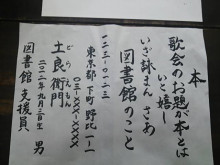 本
歌会のお題が本とは
いと嬉し
いざ詠まん さあ
図書館のこと
一二三-〇〇二三
東京都 下町 野比一-二
〇三-XXX-XXXX
どらえもん
土良衛門
二〇二一年九月三日生 男
図書館支援員